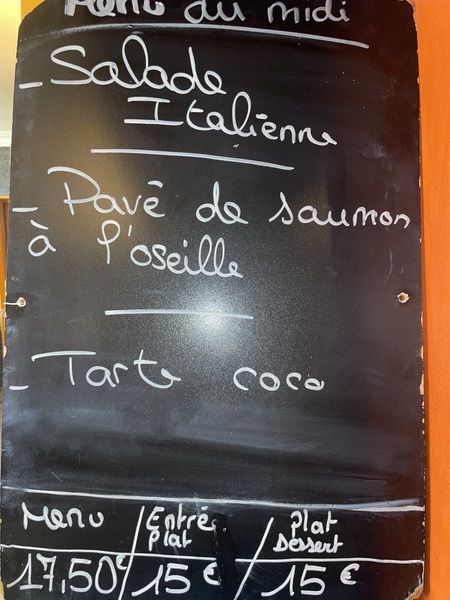 Menu du midi
- Salade
Italienne
- Pavé de saumon
à l'oseille
- Tarte coco
Menu / Entrée Plat / Plat Dessert
17,50€ / 15€ / 15€